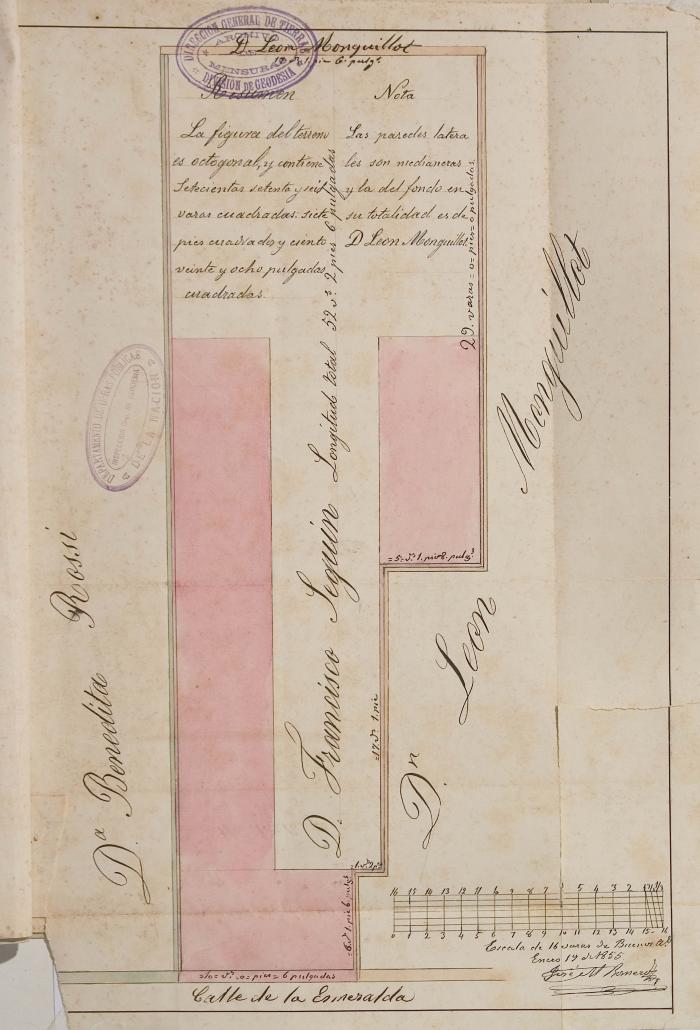 DIRECCIÓN GENERAL DE TIERRAS
ARCHIVO
DE
MENSURAS
DIVISIÓN DE GEODESIA
D. Leon Monguillot
Resumen
La figura del terreno
es octogonal, y contiene
Setecientas setenta y seis
varas cuadradas. siete
pies cuadrados y ciento
veinte y ocho pulgadas
cuadradas.
Nota
Las paredes latera
les son medianeras
y la del fondo en
su totalidad es de
D Leon Monguillot.
29. varas = 0 = pies = 0 pulgadas.
D. Francisco Seguin Longitud total 52 vs. 2 pies 6 pulgadas
DEPARTAMENTO DE OBRAS PÚBLICAS
DE LA NACION
Da Benedita Rossi
Dn Leon Monguillot
= 5 = vs. 1. pie 8. pulgs
17 vs. 1. pie
1. vs. 2 ps
6 vs. 1. pie 6. pulgs
= 10 = vs. = 0 = pies = 6 pulgadas
Calle de la Esmeralda
16 15 14 13 12 11 6 9 8 7 5 4 3 2
0 1 2 3 4 5 6 7 8 9 10 11 12 13 14 15 16
Escala de 16 varas de Buenos As
Enero 19 de 1855
José M Romero